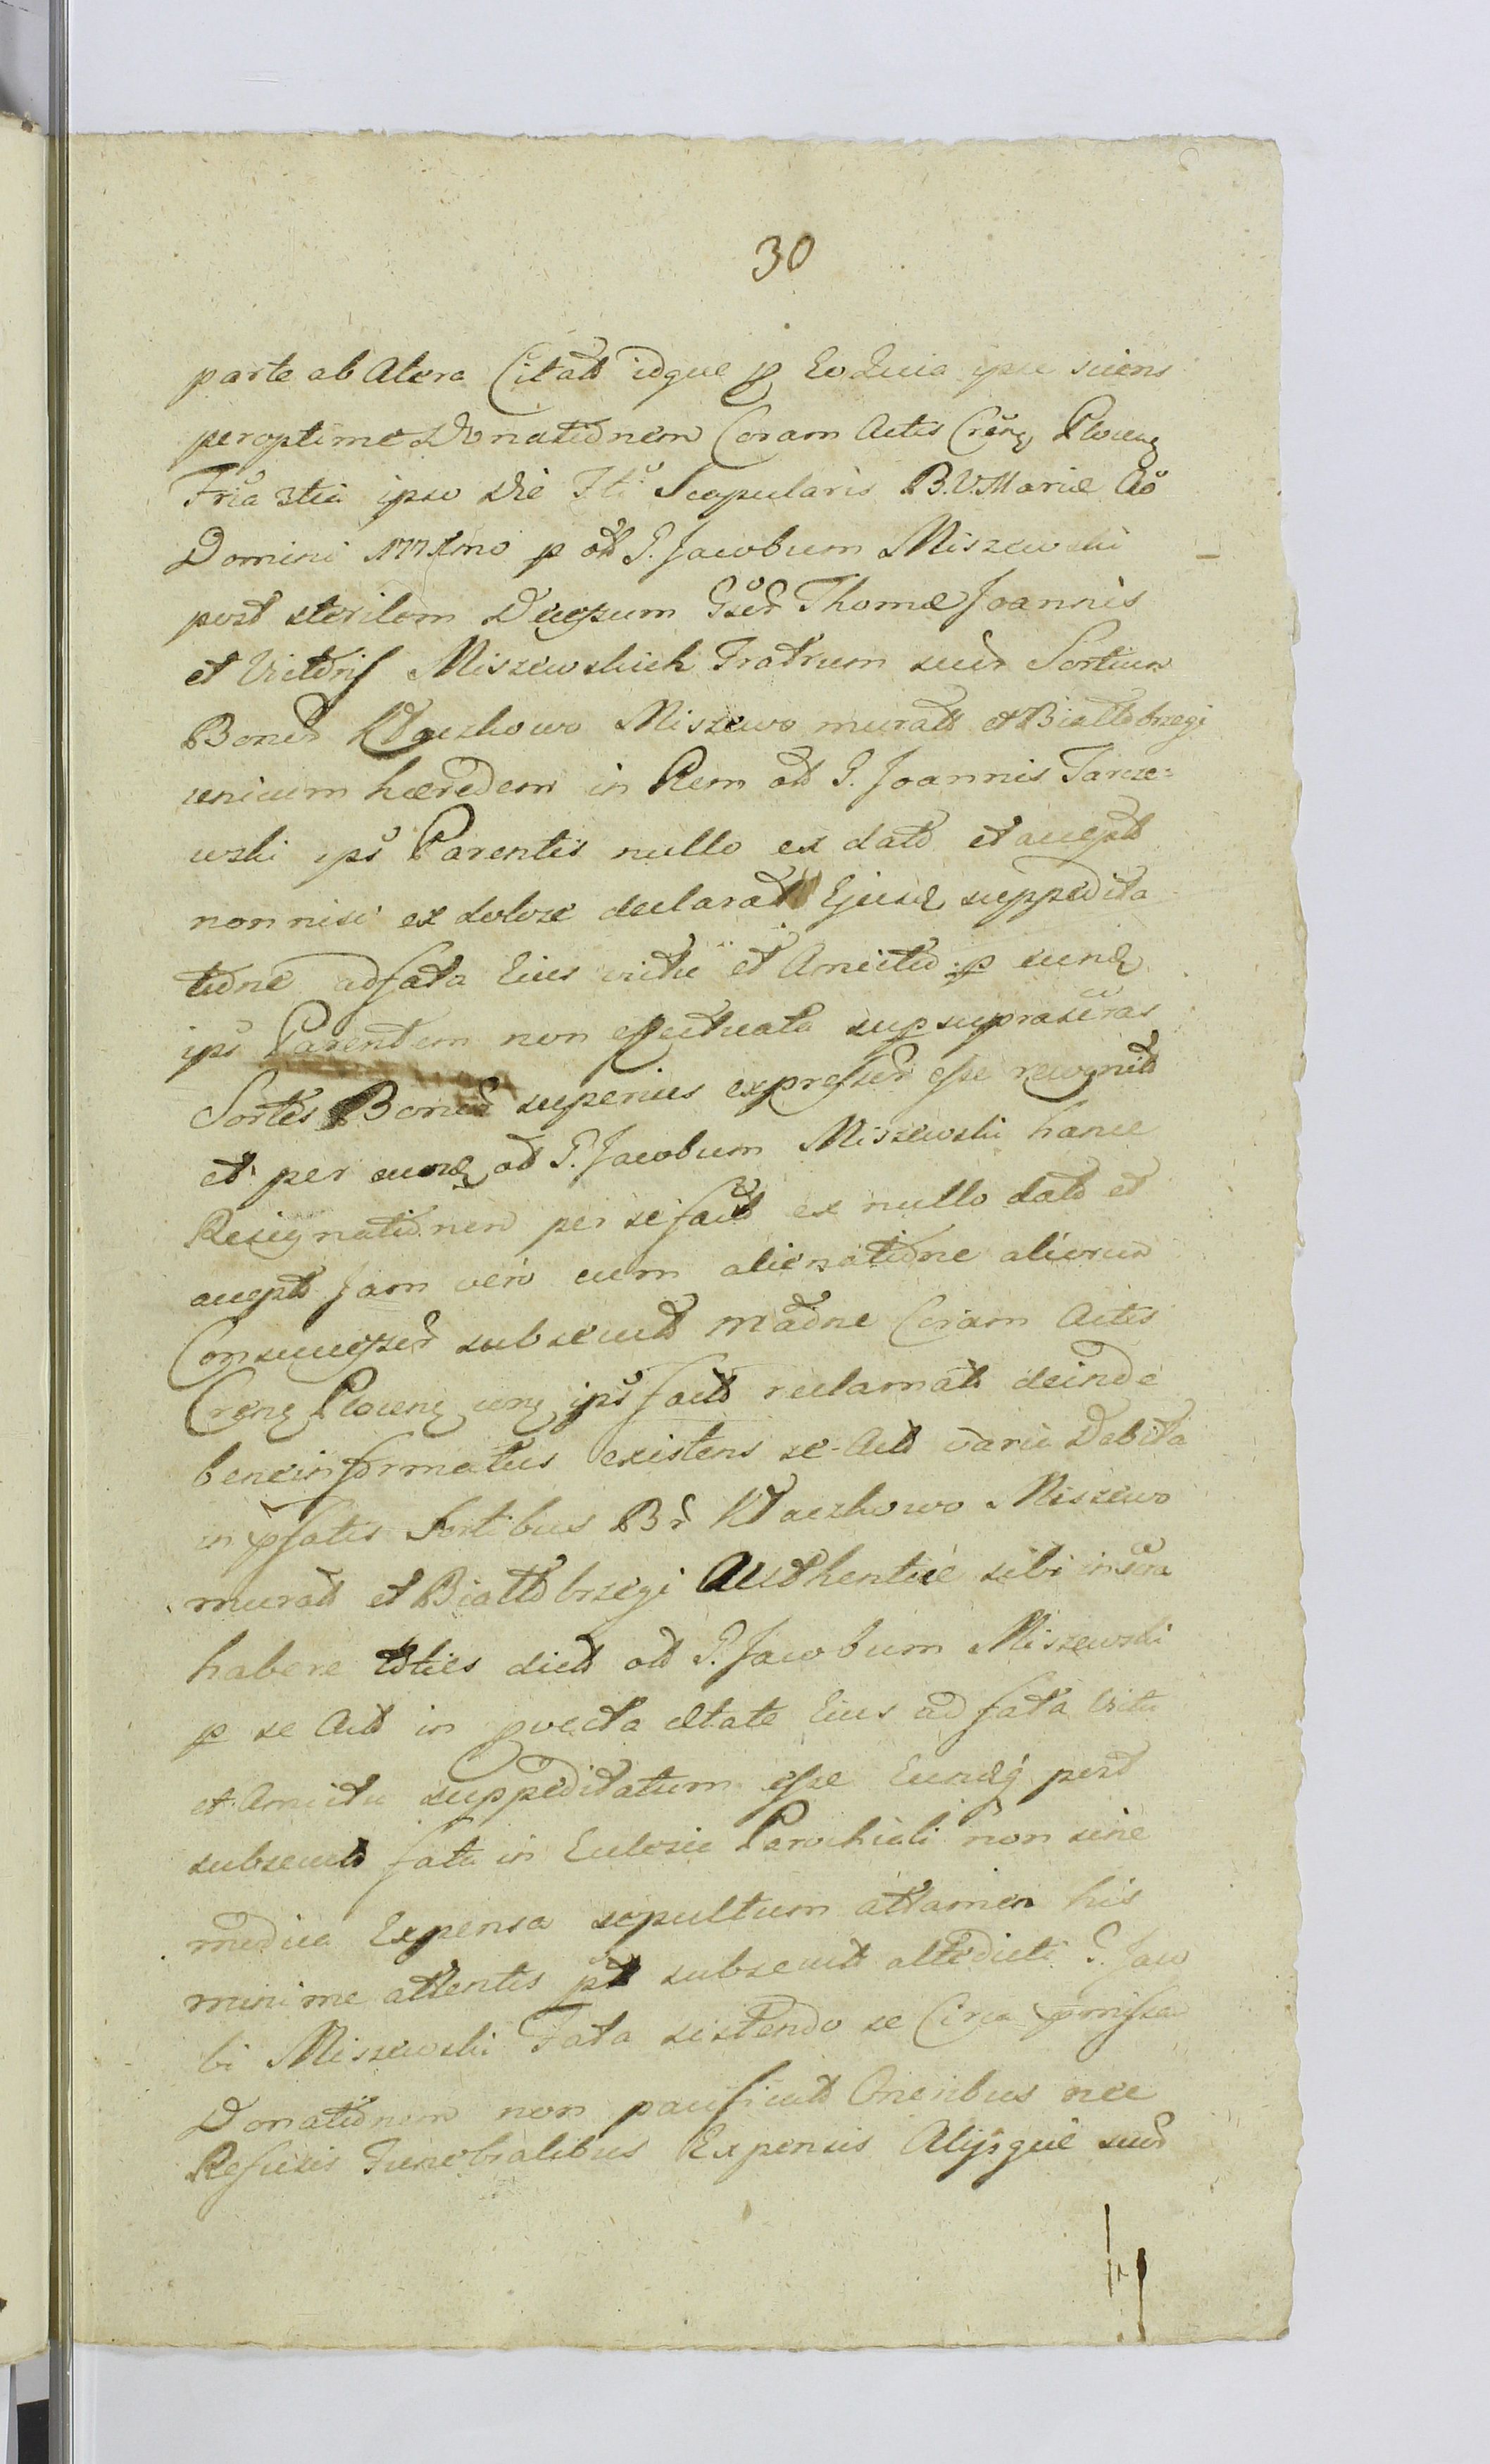 30
parte ab Altera Citatt idque p Eo Quia ipse sciens
peroptime Donationem Coram Actis Crens Plocens
Fria 3tia ipso die Fti Scapularis B.V. Mariæ Ao
Domini 1771mo p olt G. Jacobum Miszewski
post sterilem Decessum Gsor Thomæ Joannis
et Victoris Miszewskich Fratrum suor Sortium
Bonor Kłaczkowo Miszewo muratt et Białłobrzegi
unicum hæredem in Rem olt G. Joannis Tarcze=
wski ipś Parentis nullo ex dato et accepto
non nisi ex dolose declarat Ejusd suppedita
tione ad fata Eius victu et Amictu p eund
ipś Parentem non effectuata sup supra
Sortes Bonor superius expressor esse recognit
et per eund olt G. Jacobum Miszewski hance
Resignationem per se fact ex nullo dato et
accepto Jam vero cum alienatione aliorum
Consuccessor subsecut mãone Coram Actis
Crens Plocens ipś fact reclamatt deinde
bene informatus existens se Act varia Debita
in psatis Sortibus Br Kłaczkowo Miszewo
muratt et Białłobrzegi Authentice sibi inscra
habere toties dict olt G. Jacobum Miszewski
p se Act in pvecta ætate Eius ad fata Victu
et Amictu suppeditatum esse Eundq post
subsecuta fata in Eclesia Parochiali non sine
modica Expensa sepultum attamen his
minime attentis pt subsecut attedicti G. Jaco
bi Miszewski Fata sistendo se Circa pmissa
Donationem non pacificat Oneribus nec
Refusis Funebralibus Expensis Alijsque suis